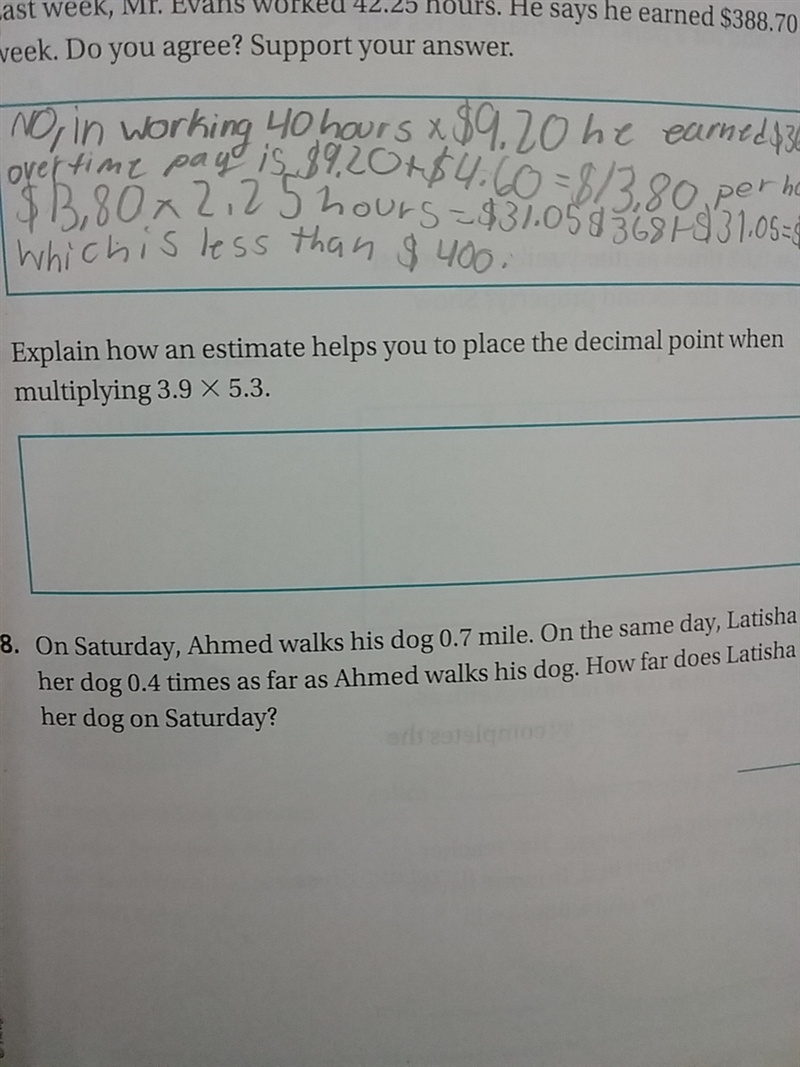 Last week, Mr. Evans worked 42.25 hours. He says he earned $388.70
week. Do you agree? Support your answer.
NO, in working 40 hours x $9.20 he earned $36
overtime pay is $9.20+$4.60=$13,80 per ho
$13,80 x 2.25 hours = $31.05 $368+$31.05=$
which is less than $400.
Explain how an estimate helps you to place the decimal point when
multiplying 3.9 × 5.3.
8. On Saturday, Ahmed walks his dog 0.7 mile. On the same day, Latisha
her dog 0.4 times as far as Ahmed walks his dog. How far does Latisha
her dog on Saturday?
completes the